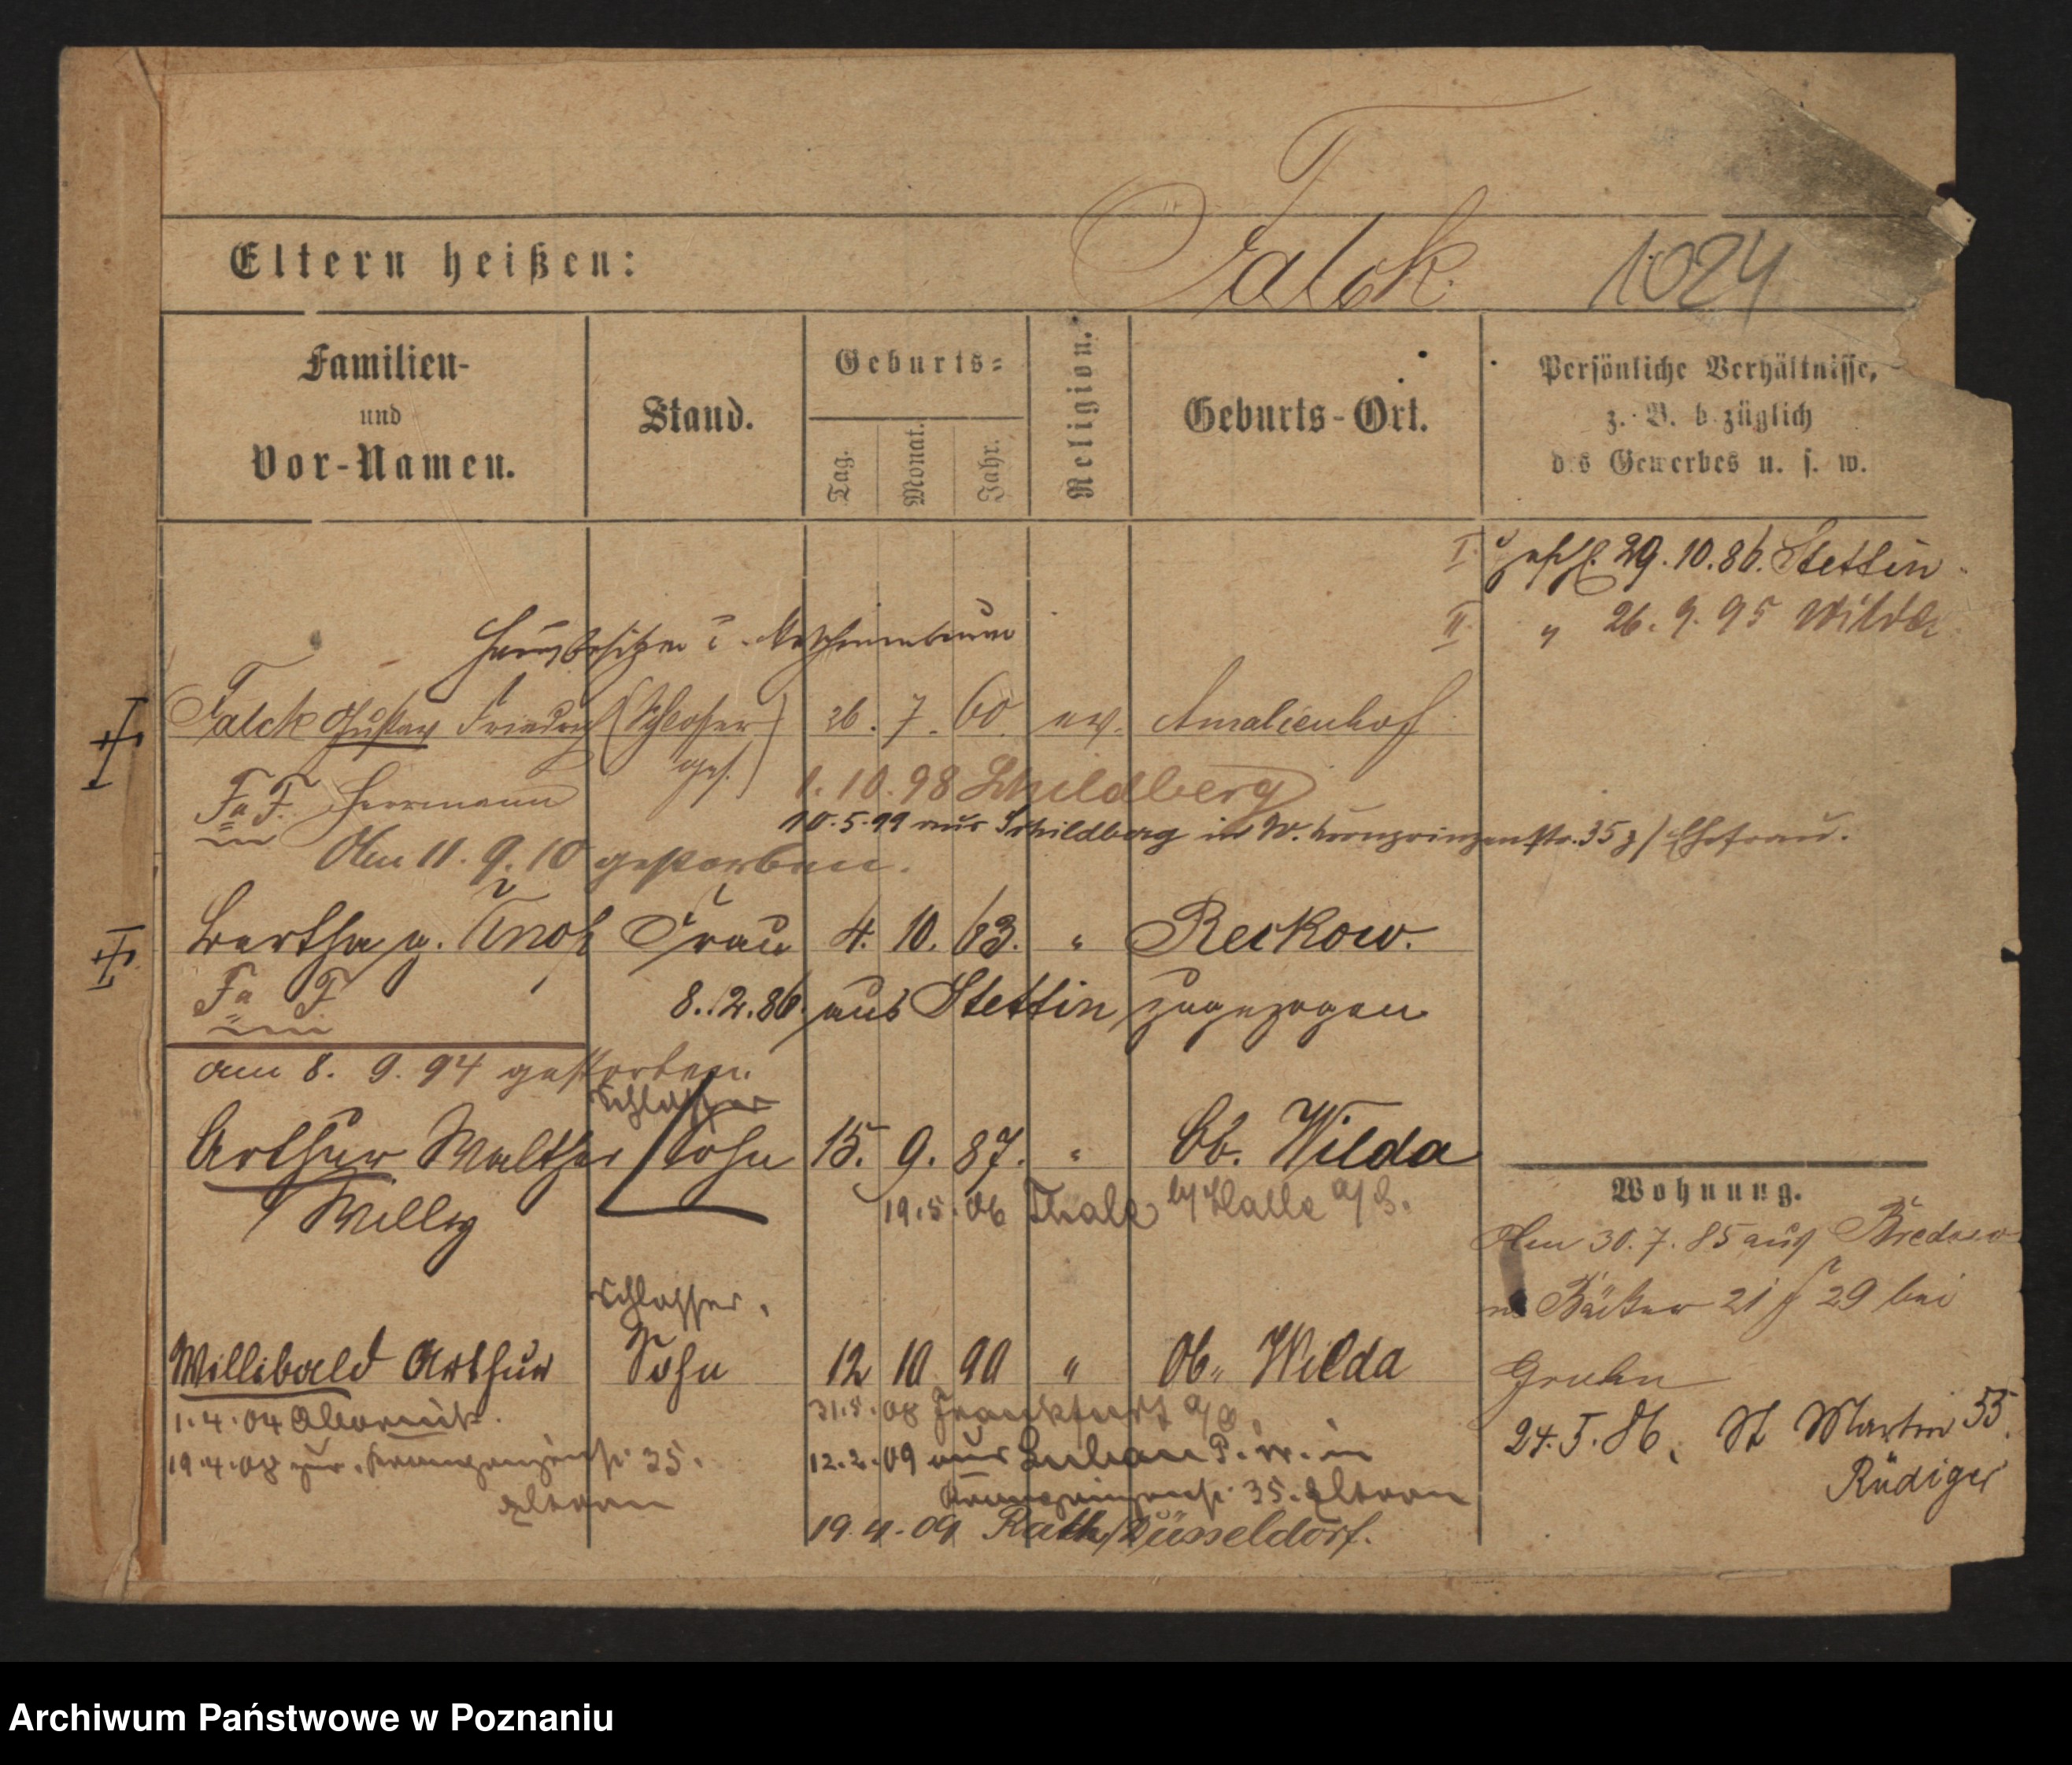 Falck
1024
Eltern heißen:
Familien-
und
Vor-Namen.
Stand.
Geburts-
Tag.
Monat.
Jahr.
Religion.
Geburts-Ort.
Persönliche Verhältnisse,
z. B. bezüglich
des Gewerbes u. s. w.
I. 29.10.86. Stettin
II. " 26. 9. 95 Wilda
Hausbesitzer u. Maschinenbauer
Falck Gustav Friedrich (Schlosser 26. 7. 60. ev. Amalienhof
ges.)
Fa F. Herrmann
1. 10. 98 Schildberg
10.5.99 aus Schildberg in W. Kronprinzenstr. 35 z/ Ehefrau.
Am 11. 9. 10 gestorben.
Bertha g. Frau 4. 10. 63. " Reckow.
Fa F
8.12.86 aus Stettin zugezogen
am 8. 9. 94 gestorben.
Schlosser
Arthur Walther Sohn 15. 9. 87. " Ob. Wilda
Willy
19.5.06 Thale b/Halle a/S.
Schlosser.
Willibald Arthur Sohn 12 10 90 " Ob. Wilda
1.4.04 Obornik.
31.5.08 Frankfurt a/O.
19.4.08 zur. Kronprinzenst. 35.
Eltern
12.2.09 aus P. W. in
Kronprinzenst. 35. Eltern
19.4.09 Rath/Düsseldorf.
Wohnung.
Am 30. 7. 85 aus Bredow
n. Bäcker 21 29 bei
24. 5. 86. St Martin 55.
Rüdiger
Archiwum Państwowe w Poznaniu